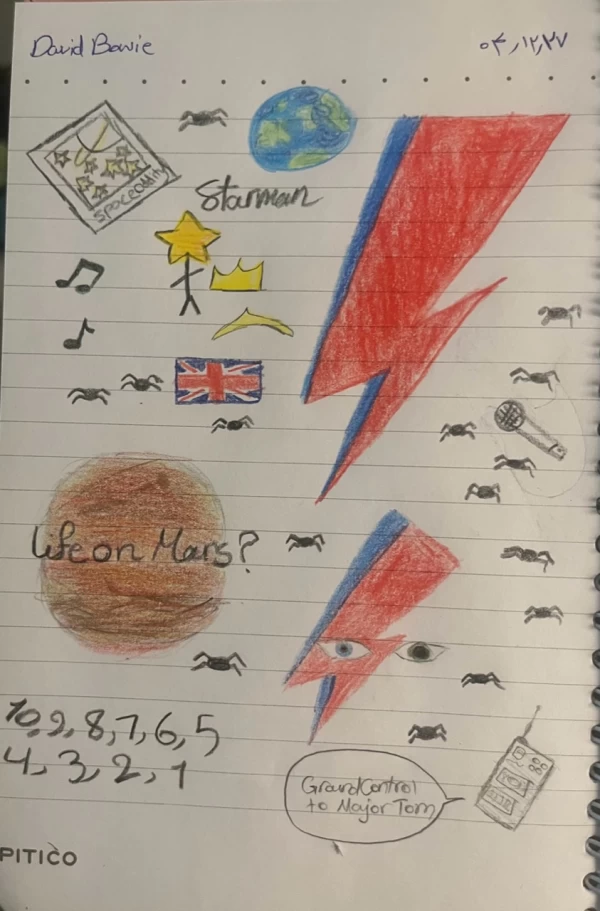 David Bowie
۰۴,۱۲,۲۷
Space Oddity
Starman
Life on Mars?
10, 9, 8, 7, 6, 5
4, 3, 2, 1
Ground Control
to Major Tom
PITICO